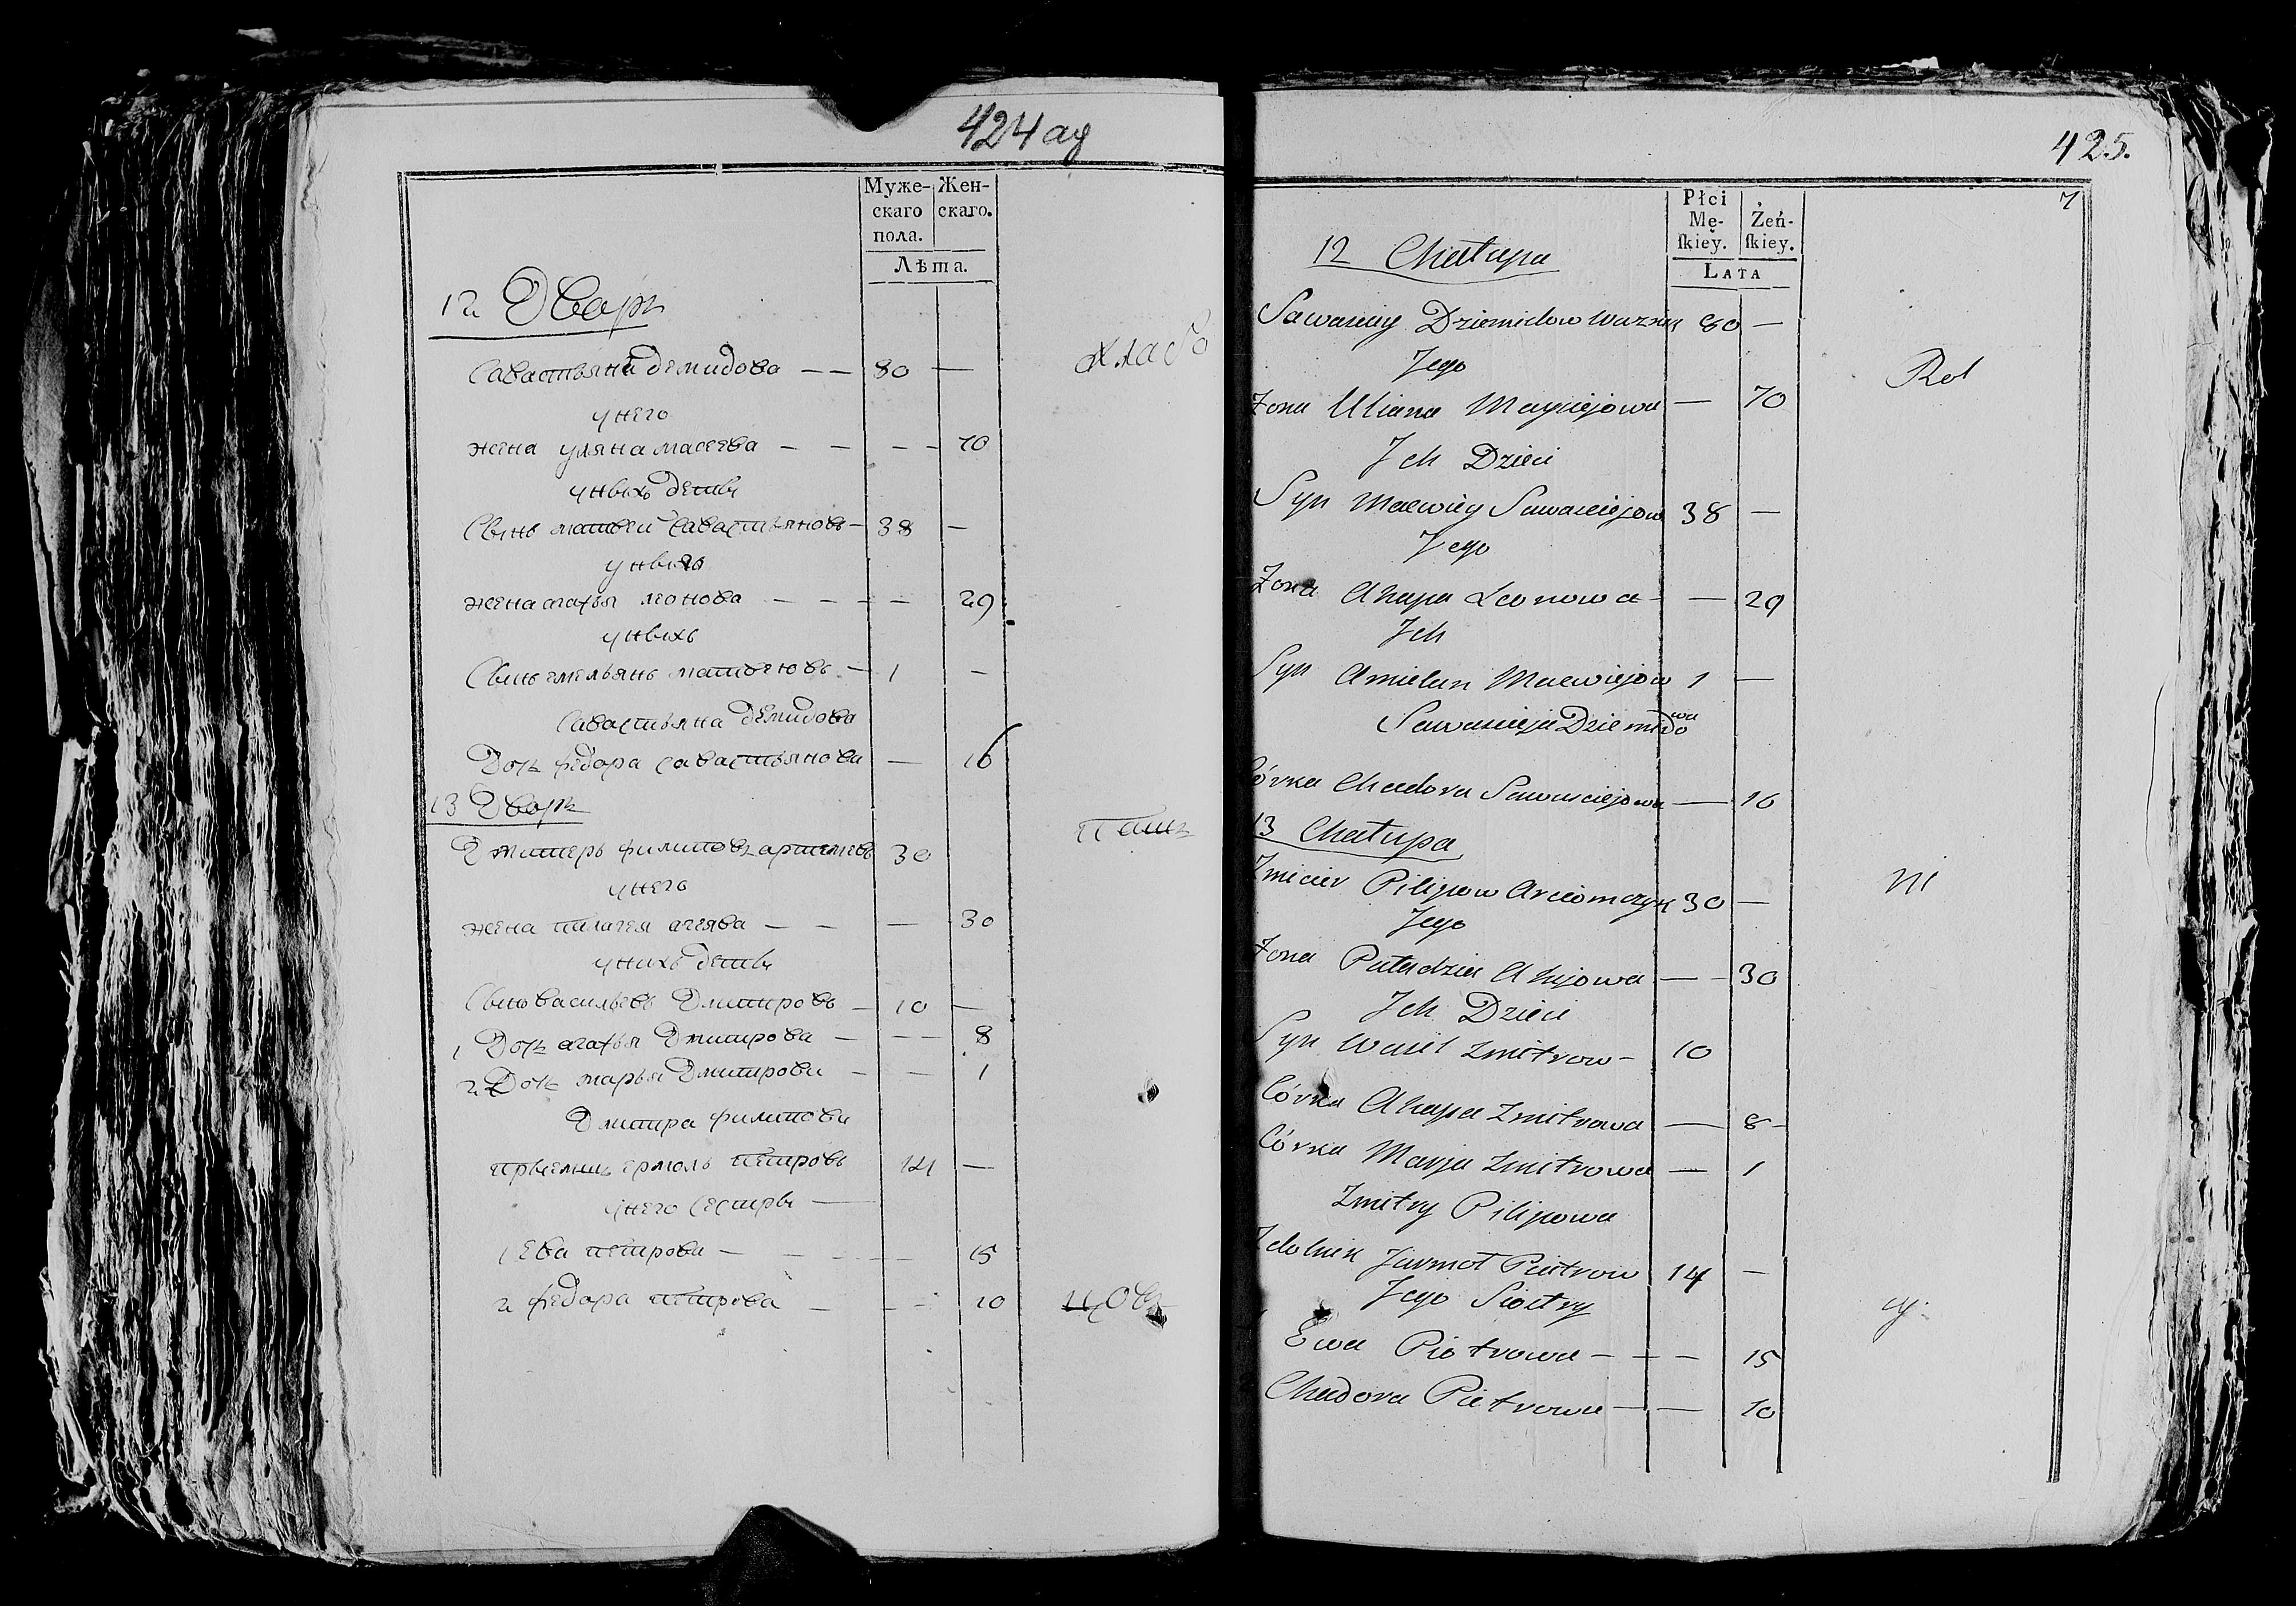 424 ад
Муже-
скаго
пола.
Жен-
скаго.
Лѣта.
12 Дворъ
Савастьянъ демидовъ — — 80 —
хлабо
у него
жена уляна масеева — — — — 70
у ныхъ деты
Сынъ матвей савастьяновъ — 38 —
у ныхъ
жена агафья леонова — — — — 29
у ныхъ
Сынъ емельянъ матвеювъ — 1 —
Савастьяна демидова
Дочь федора савастьянова — 16
13 Дворъ
пашъ
Дмитеръ филиповъ артемевъ 30
у него
жена пилагея агеява — — — 30
у нихъ деты
Сынъ васильевъ Дмитровъ — 10 —
1 Дочь агафья Дмитрова — — — 8
2 Дочь марья Дмитрова — — 1
Дмитра филипова
прыемышъ ермолъ петровъ 14 —
у него сестры —
1 Ева петрова — — — — 15
2 федора петрова — — — 10
цовъ
425.
7
Płci
Mę-
ſkiey.
Żeń-
ſkiey.
LATA
12 Chałupa
Sawasciey Dziemidow Wuznik 80 —
Jego
Rol
Zona Uliana Mayciejowa — 70
Jch Dzieci
Syn Maewiey Sawasciejow 38 —
Jego
Zona Ahapa Leonowa — — 29
Jch
Syn Amielan Maewiejow 1 —
Sawascieja Dziemidowa
Córka Chadora Sawasciejowa — 16
13 Chałupa
Zmicier Pilipow Arciomczyk 30 —
ni
Jego
Zona Patadzia Ahijowa — — 30
Jch Dzieci
Syn Wasil Zmitrow — 10
Córka Ahapa Zmitrowa — 8 —
Córka Marja Zmitrowa — 1
Zmitry Pilipowa
Zdolnik Jarmoł Pietrow 14 —
Jego Siostry
cy.
Ewa Piotrowa — — — 15
Chadora Pietrowa — — 10